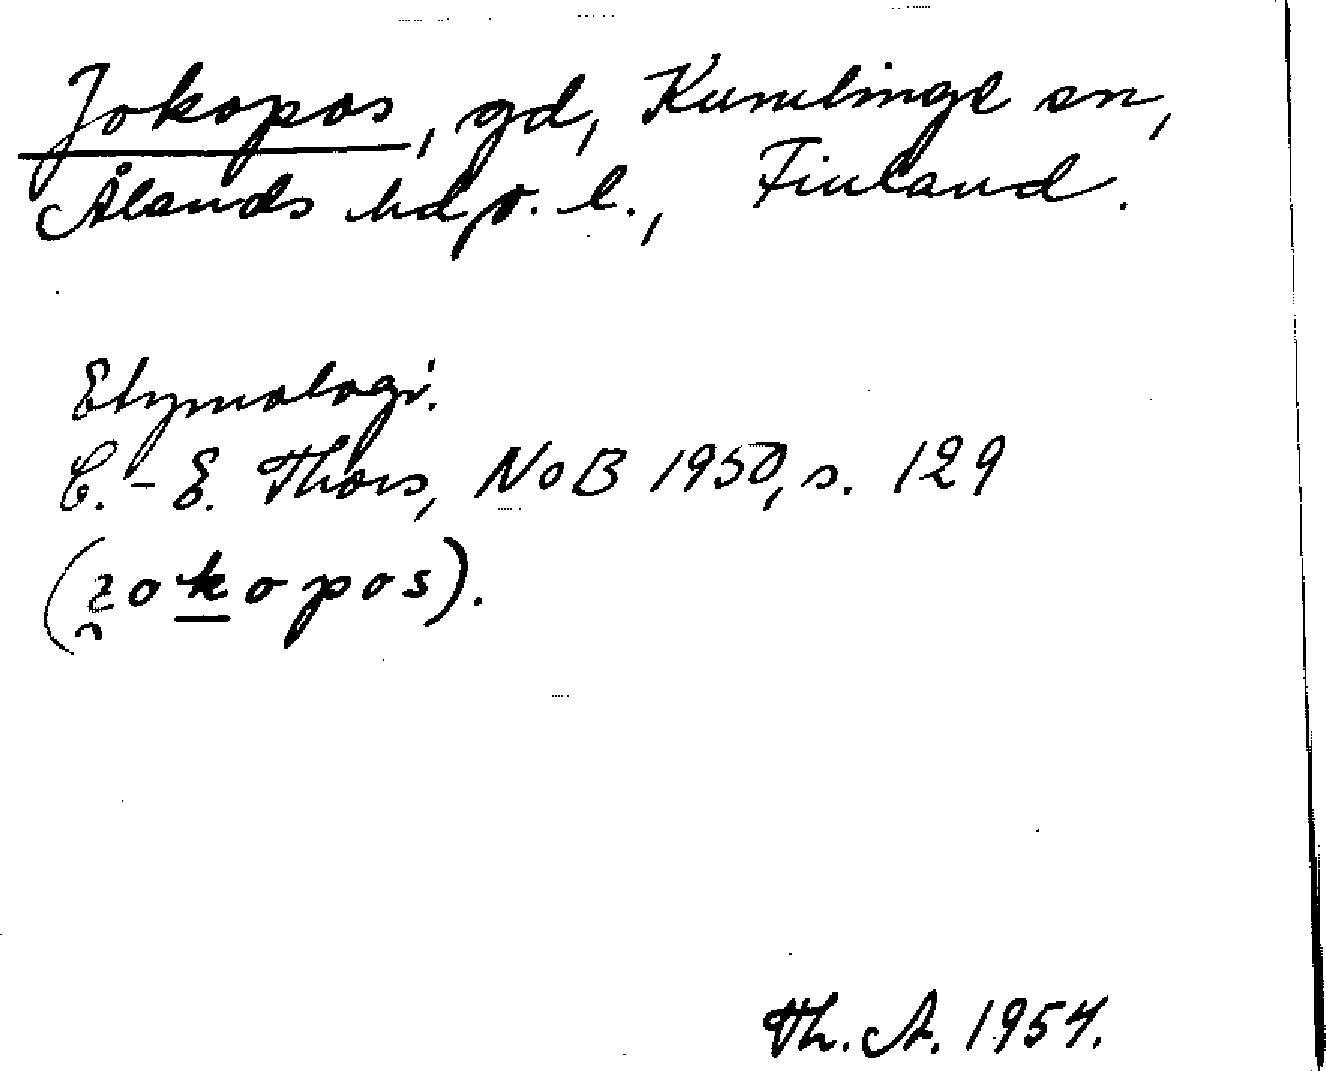 Jokopos, gd, Kumlinge sn,
Ålands hdr. l., Finland.
Etymologi.
C.-E. Thors, NoB 1950, s. 129
(zokopos).
Th. A. 1954.